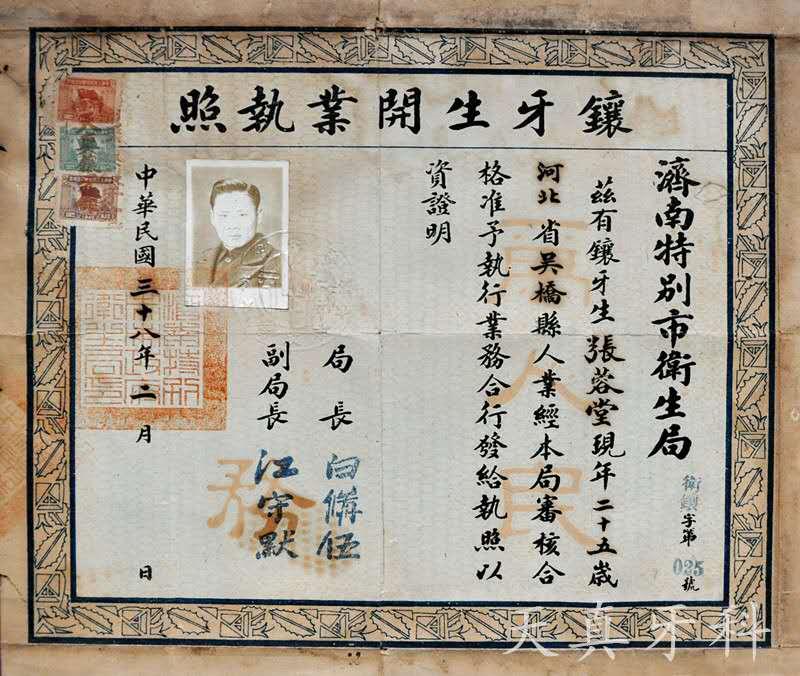 鑲牙生開業執照
濟南特別市衛生局
衛鑲字第025號
茲有鑲牙生張蓉堂現年二十五歲
河北省吳橋縣人業經本局審核合
格准予執行業務合行發給執照以
資證明
局長白備伍
副局長江守默
中華民國三十八年二月 日
為人民
務
天真牙科